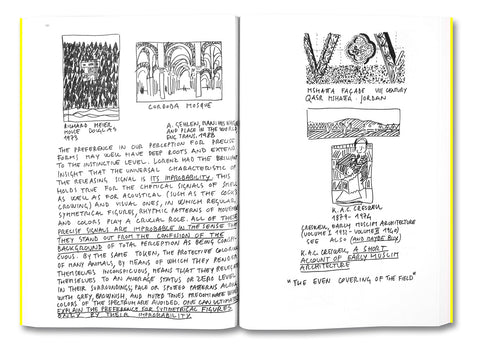 CORDOBA MOSQUE
RICHARD MEIER
HOUSE DOUGLAS
1973
A. GEHLEN, MAN: HIS NATURE
AND PLACE IN THE WORLD
ENG. TRANS. 1988
THE PREFERENCE IN OUR PERCEPTION FOR PRECISE
FORMS MAY WELL HAVE DEEP ROOTS AND EXTEND
TO THE INSTINCTIVE LEVEL. LORENZ HAD THE BRILLIANT
INSIGHT THAT THE UNIVERSAL CHARACTERISTIC OF
THE RELEASING SIGNAL IS ITS IMPROBABILITY. THIS
HOLDS TRUE FOR THE CHEMICAL SIGNALS OF SMELL
AS WELL AS FOR ACOUSTICAL (SUCH AS THE COCK'S
CROWING) AND VISUAL ONES, IN WHICH REGULAR,
SYMMETRICAL FIGURES, RHYTHMIC PATTERNS OF MOVEMENT
AND COLORS PLAY A CRUCIAL ROLE. ALL OF THESE
PRECISE SIGNALS ARE IMPROBABLE IN THE SENSE THAT
THEY STAND OUT FROM THE CONFUSION OF THE
BACKGROUND OF TOTAL PERCEPTION AS BEING CONSPI-
CUOUS. BY THE SAME TOKEN, THE PROTECTIVE COLORING
OF MANY ANIMALS, BY MEANS OF WHICH THEY RENDER
THEMSELVES INCONSPICUOUS, MEANS THAT THEY RELEGATE
THEMSELVES TO AN AVERAGE STATUS OR ZERO LEVEL
IN THEIR SURROUNDINGS; PALE OR SPOTTED PATTERNS ALONG
WITH GREY, BROWNISH, AND MUTED TONES PREDOMINATE. BRIGHT
COLORS OF THE SPECTRUM ARE AVOIDED. ONE CAN ULTIMATELY
EXPLAIN THE PREFERENCE FOR SYMMETRICAL FIGURES
ONLY BY THEIR IMPROBABILITY.
MSHATTA FAÇADE VIII CENTURY
QASR MSHATTA - JORDAN
K.A.C. CRESWELL
1879 - 1974
CRESWELL, EARLY MUSLIM ARCHITECTURE
(VOLUME I 1932 - VOLUME II 1940)
SEE ALSO (AND MAYBE BUY)
K.A.C. CRESWELL, A SHORT
ACCOUNT OF EARLY MUSLIM
ARCHITECTURE
"THE EVEN COVERING OF THE FIELD"